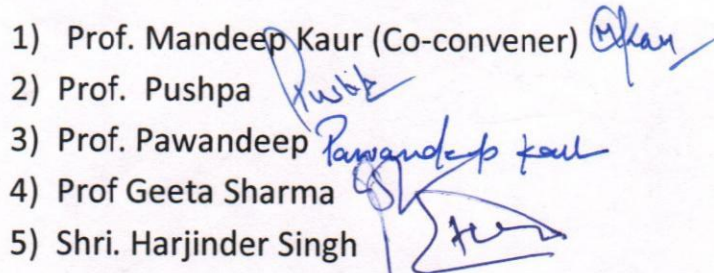 1) Prof. Mandeep Kaur (Co-convener) MKaur
2) Prof. Pushpa Pushp
3) Prof. Pawandeep Pawandeep Kaur
4) Prof Geeta Sharma
5) Shri. Harjinder Singh